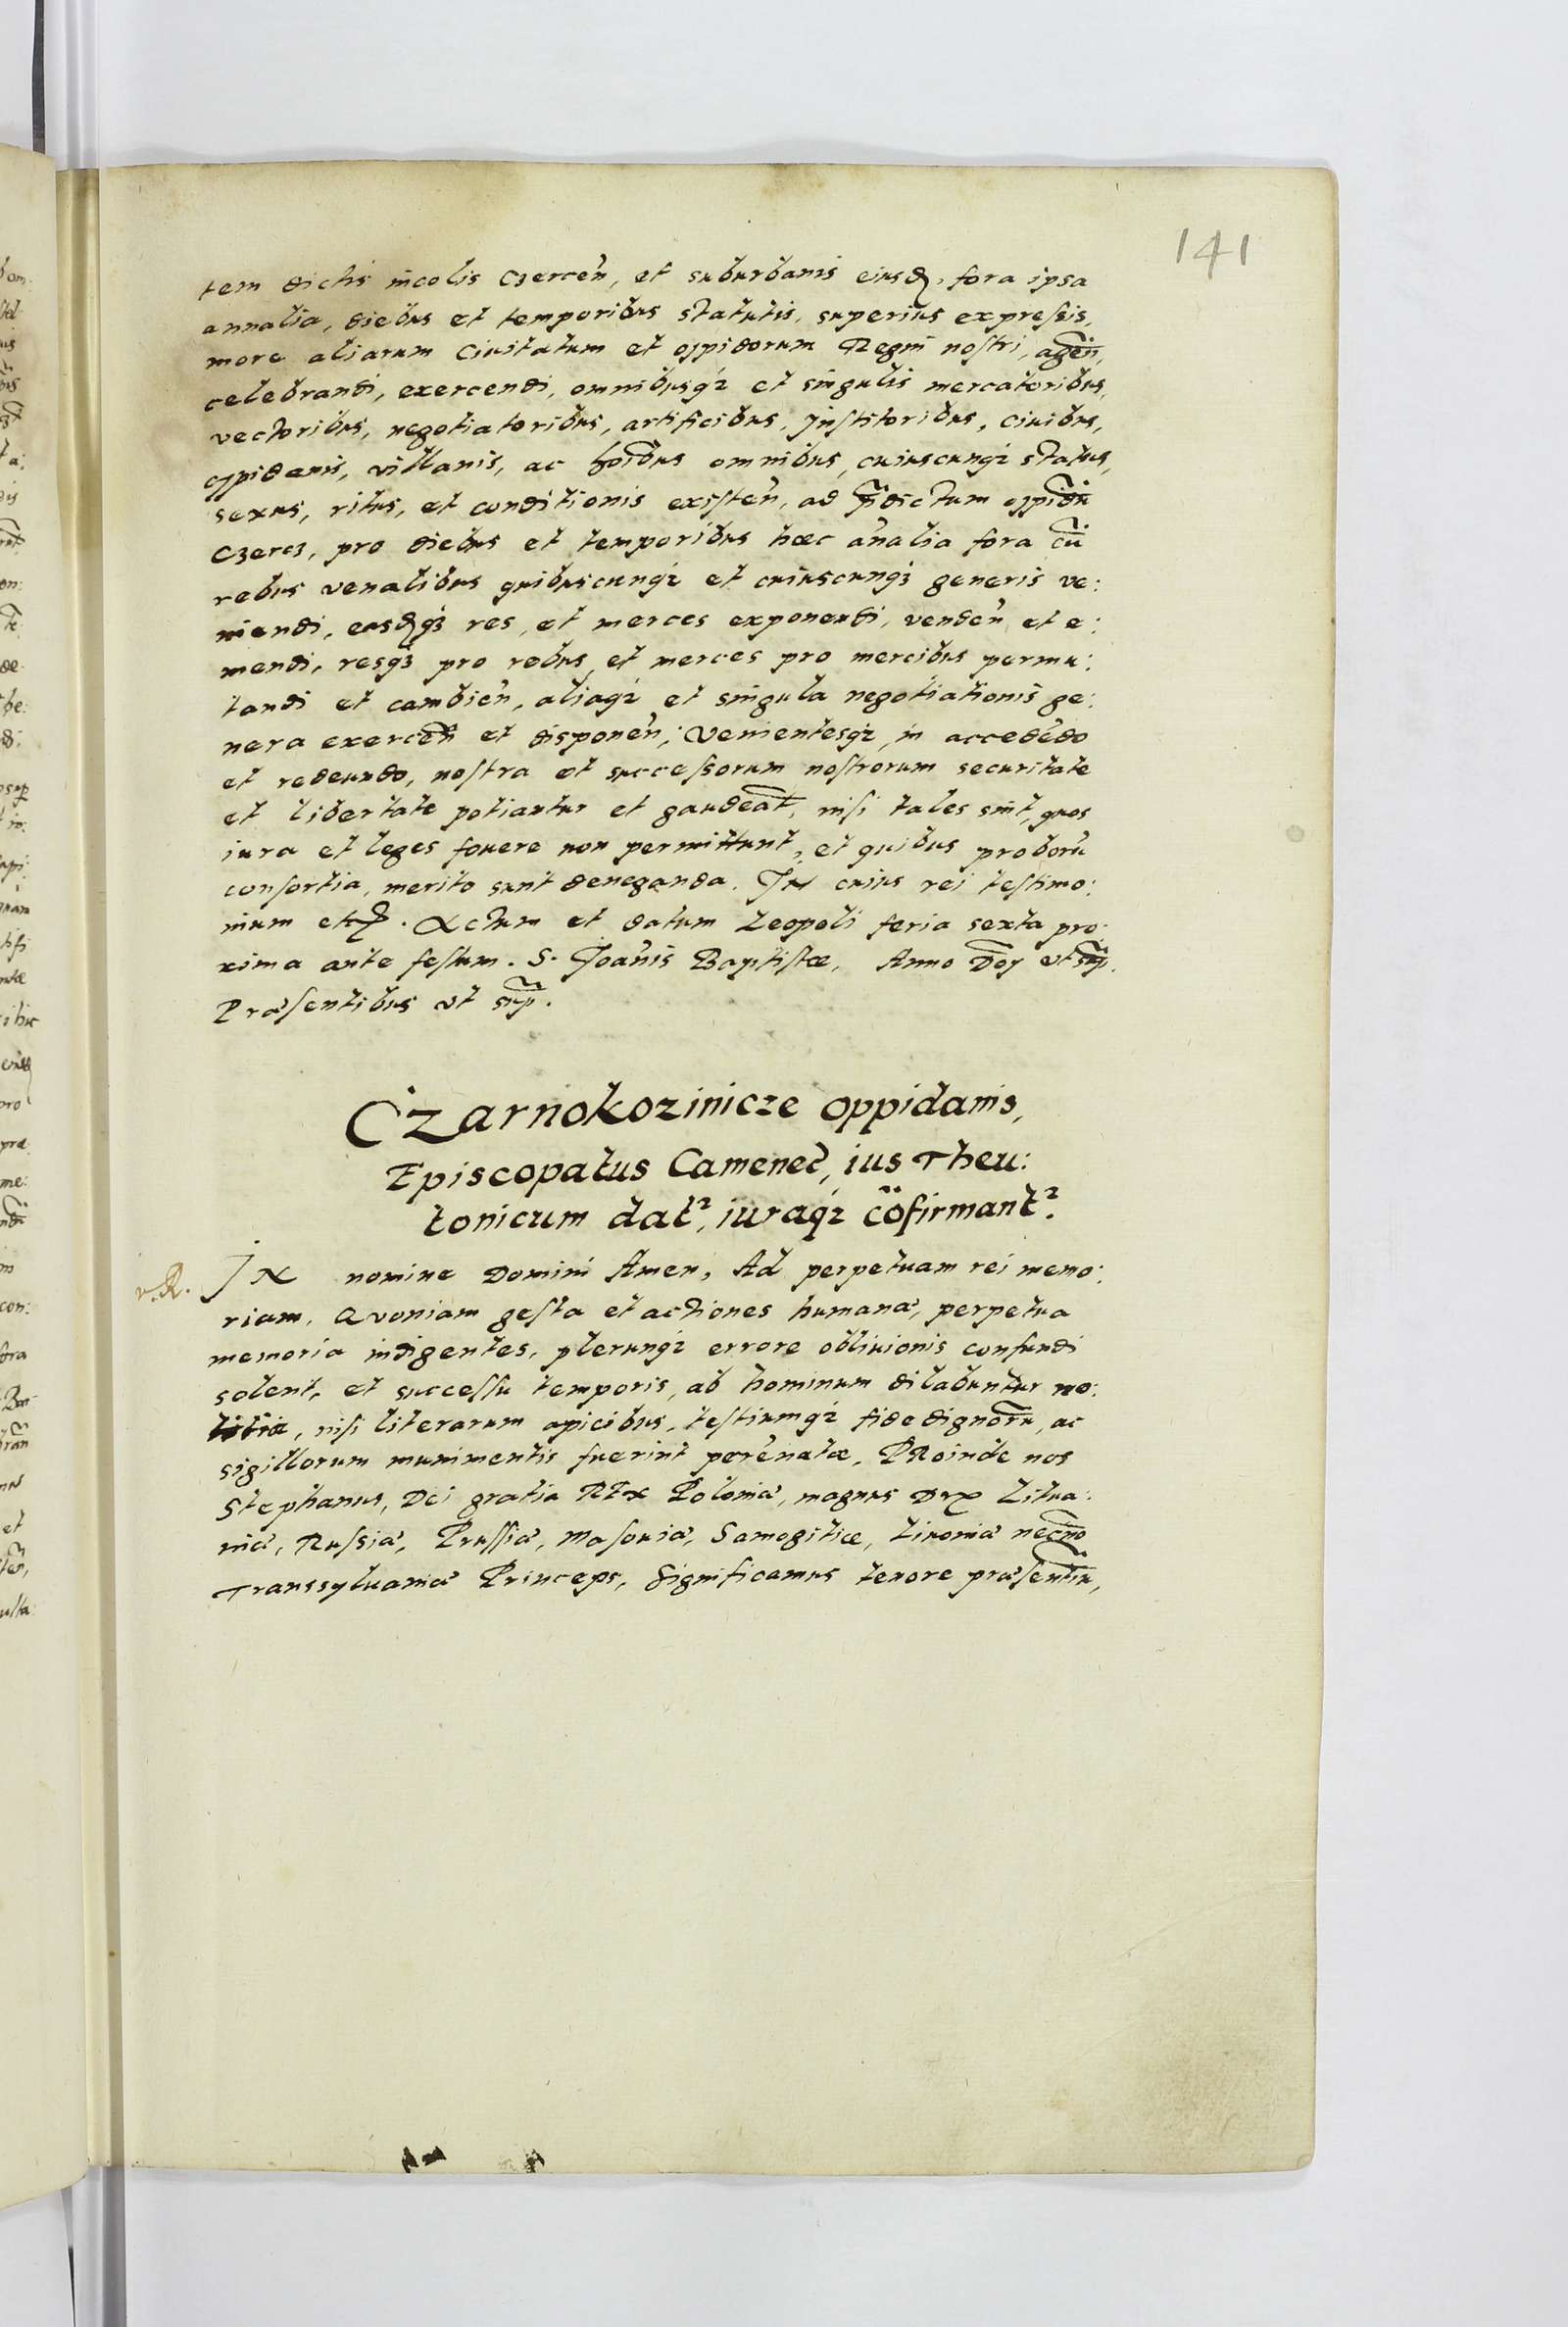 141
tem dictis incolis Czerceñ, et suburbanis eiusd. fora ipsa
annalia, diebus et temporibus statutis, superius expressis,
more aliarum Ciuitatum et oppidorum Regni nostri, ageñ,
celebrandi, exercendi, omnibusq₃ et singulis mercatoribus,
vectoribus, negotiatoribus, artificibus, Institoribus, Ciuibus,
oppidanis, villanis, ac hoı̃bus omnibus, cuiuscunq₃ status,
sexus, ritus, et conditionis existeñ, ad p̃dictum oppidũ
Czercz, pro diebus et temporibus hæc añalia fora cũ
rebus venalibus quibuscunq₃ et cuiuscunq₃ generis ve:
niendi, easdq₃ res, et merces exponendi, vendeñ et e:
mendi, resq₃ pro rebus et merces pro mercibus permu:
tandi et cambieñ, aliaq₃ et singula negotiationis ge:
nera exerceñ et disponeñ; Venientesq₃ in accedẽdo
et redeundo, nostra et successorum nostrorum securitate
et libertate potiantur et gaudeãt, nisi tales sint, quos
iura et leges fouere non permittunt, et quibus proborũ
consortia, merito sunt deneganda. IN cuius rei testimo:
nium etc. Actum et datum Leopoli feria sexta pro:
xima ante festum. S. Joãnis Baptistæ, Anno Doj vt sup̃.
Præsentibus vt sup̃.
Czarnokozinicze oppidanis,
Episcopatus Cameneč, ius Theu:
tonicum dat², iuraq₃ cõfirmant².
v. R. IN nomine Domini Amen, Ad perpetuam rei memo:
riam, Qvoniam gesta et actiones humanæ, perpetua
memoria indigentes, plerunq₃ errore obliuionis confundi
solent, et successu temporis, ab hominum dilabuntur no:
titia, nisi literarum apicibus, testiumq₃ fide dignorũ, ac
sigillorum munimentis fuerint perẽnatæ, PRoinde nos
Stephanus, Dei gratia REx Poloniæ, magnus Dux Litua:
niæ, Russiæ, Prussiæ, Masouiæ, Samogitiæ, Liuoniæ necño
Transsyluaniæ Princeps, Significamus tenore præsentiũ,